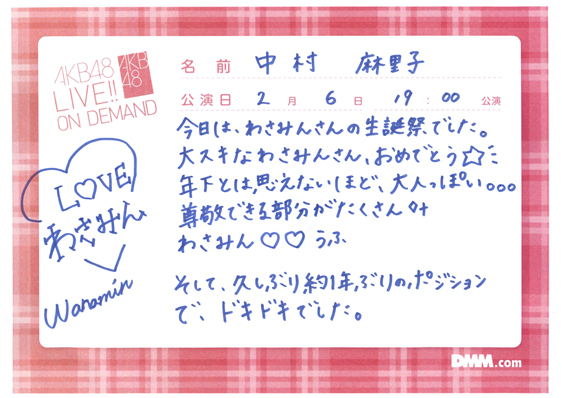 AKB48
LIVE!!
ON DEMAND
AKB
48
名前 中村 麻里子
公演日 2月6日 19:00公演
今日は、わさみんさんの生誕祭でした。
大スキなわさみんさん、おめでとう☆
年下とは思えないほど、大人っぽい。。。
尊敬できる部分がたくさん
わさみん♡♡うふ
そして、久しぶり約1年ぶりのポジション
で、ドキドキでした。
L♡VE
わさみん
Waramin
DMM.com